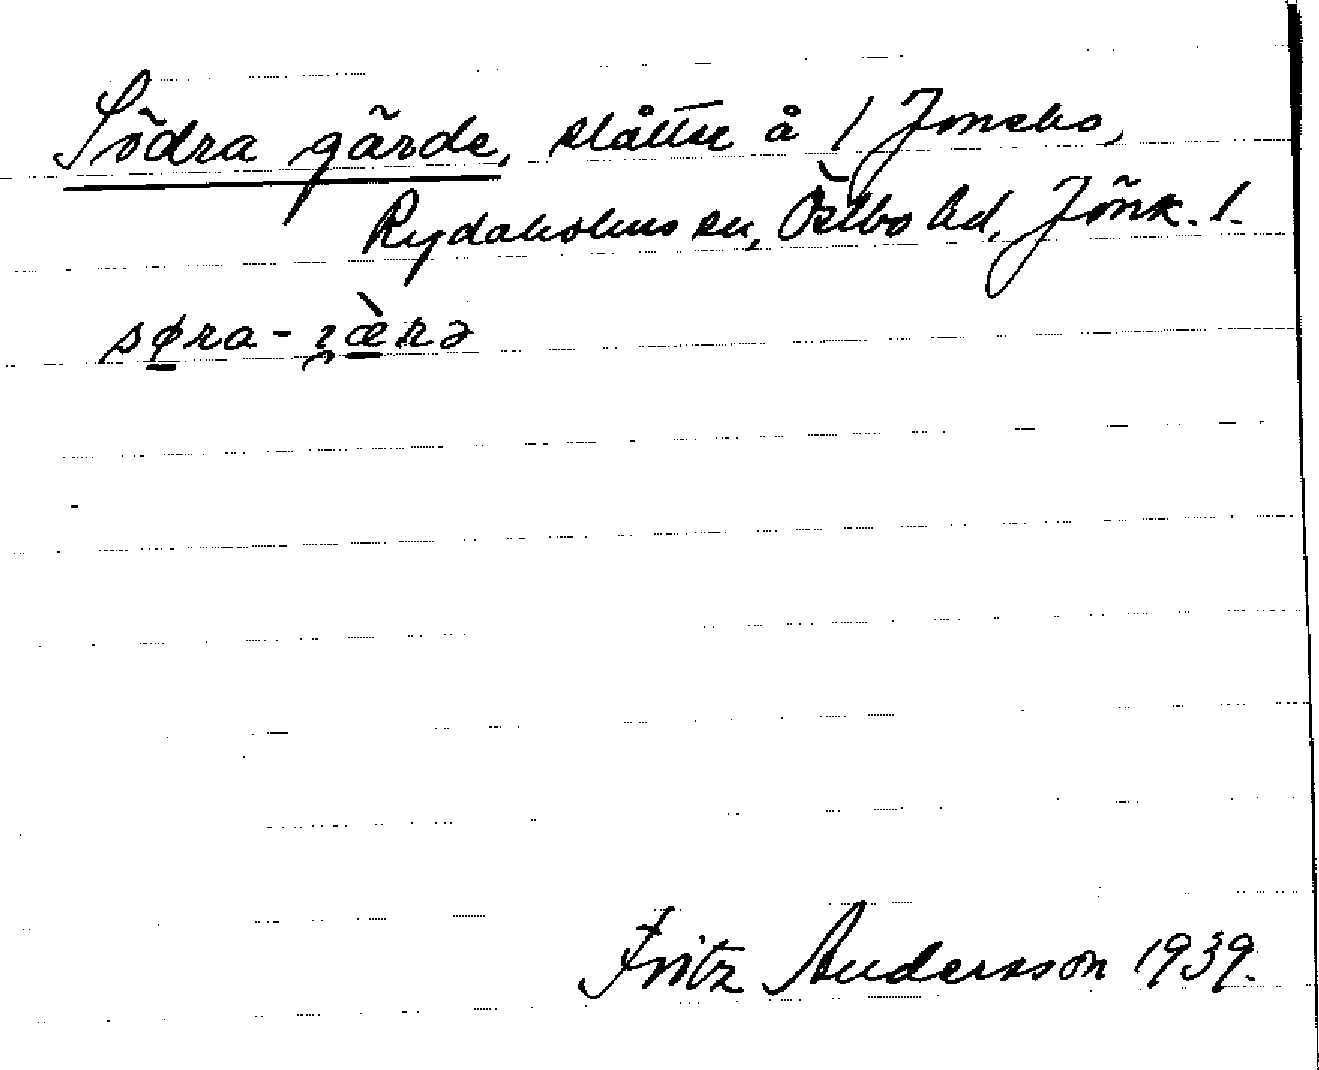 Södra gärde, slåtter å 1 Jonsbo,
Rydaholms sn, Östbo hd, Jönk. l.
søra-
Fritz Andersson 1939.